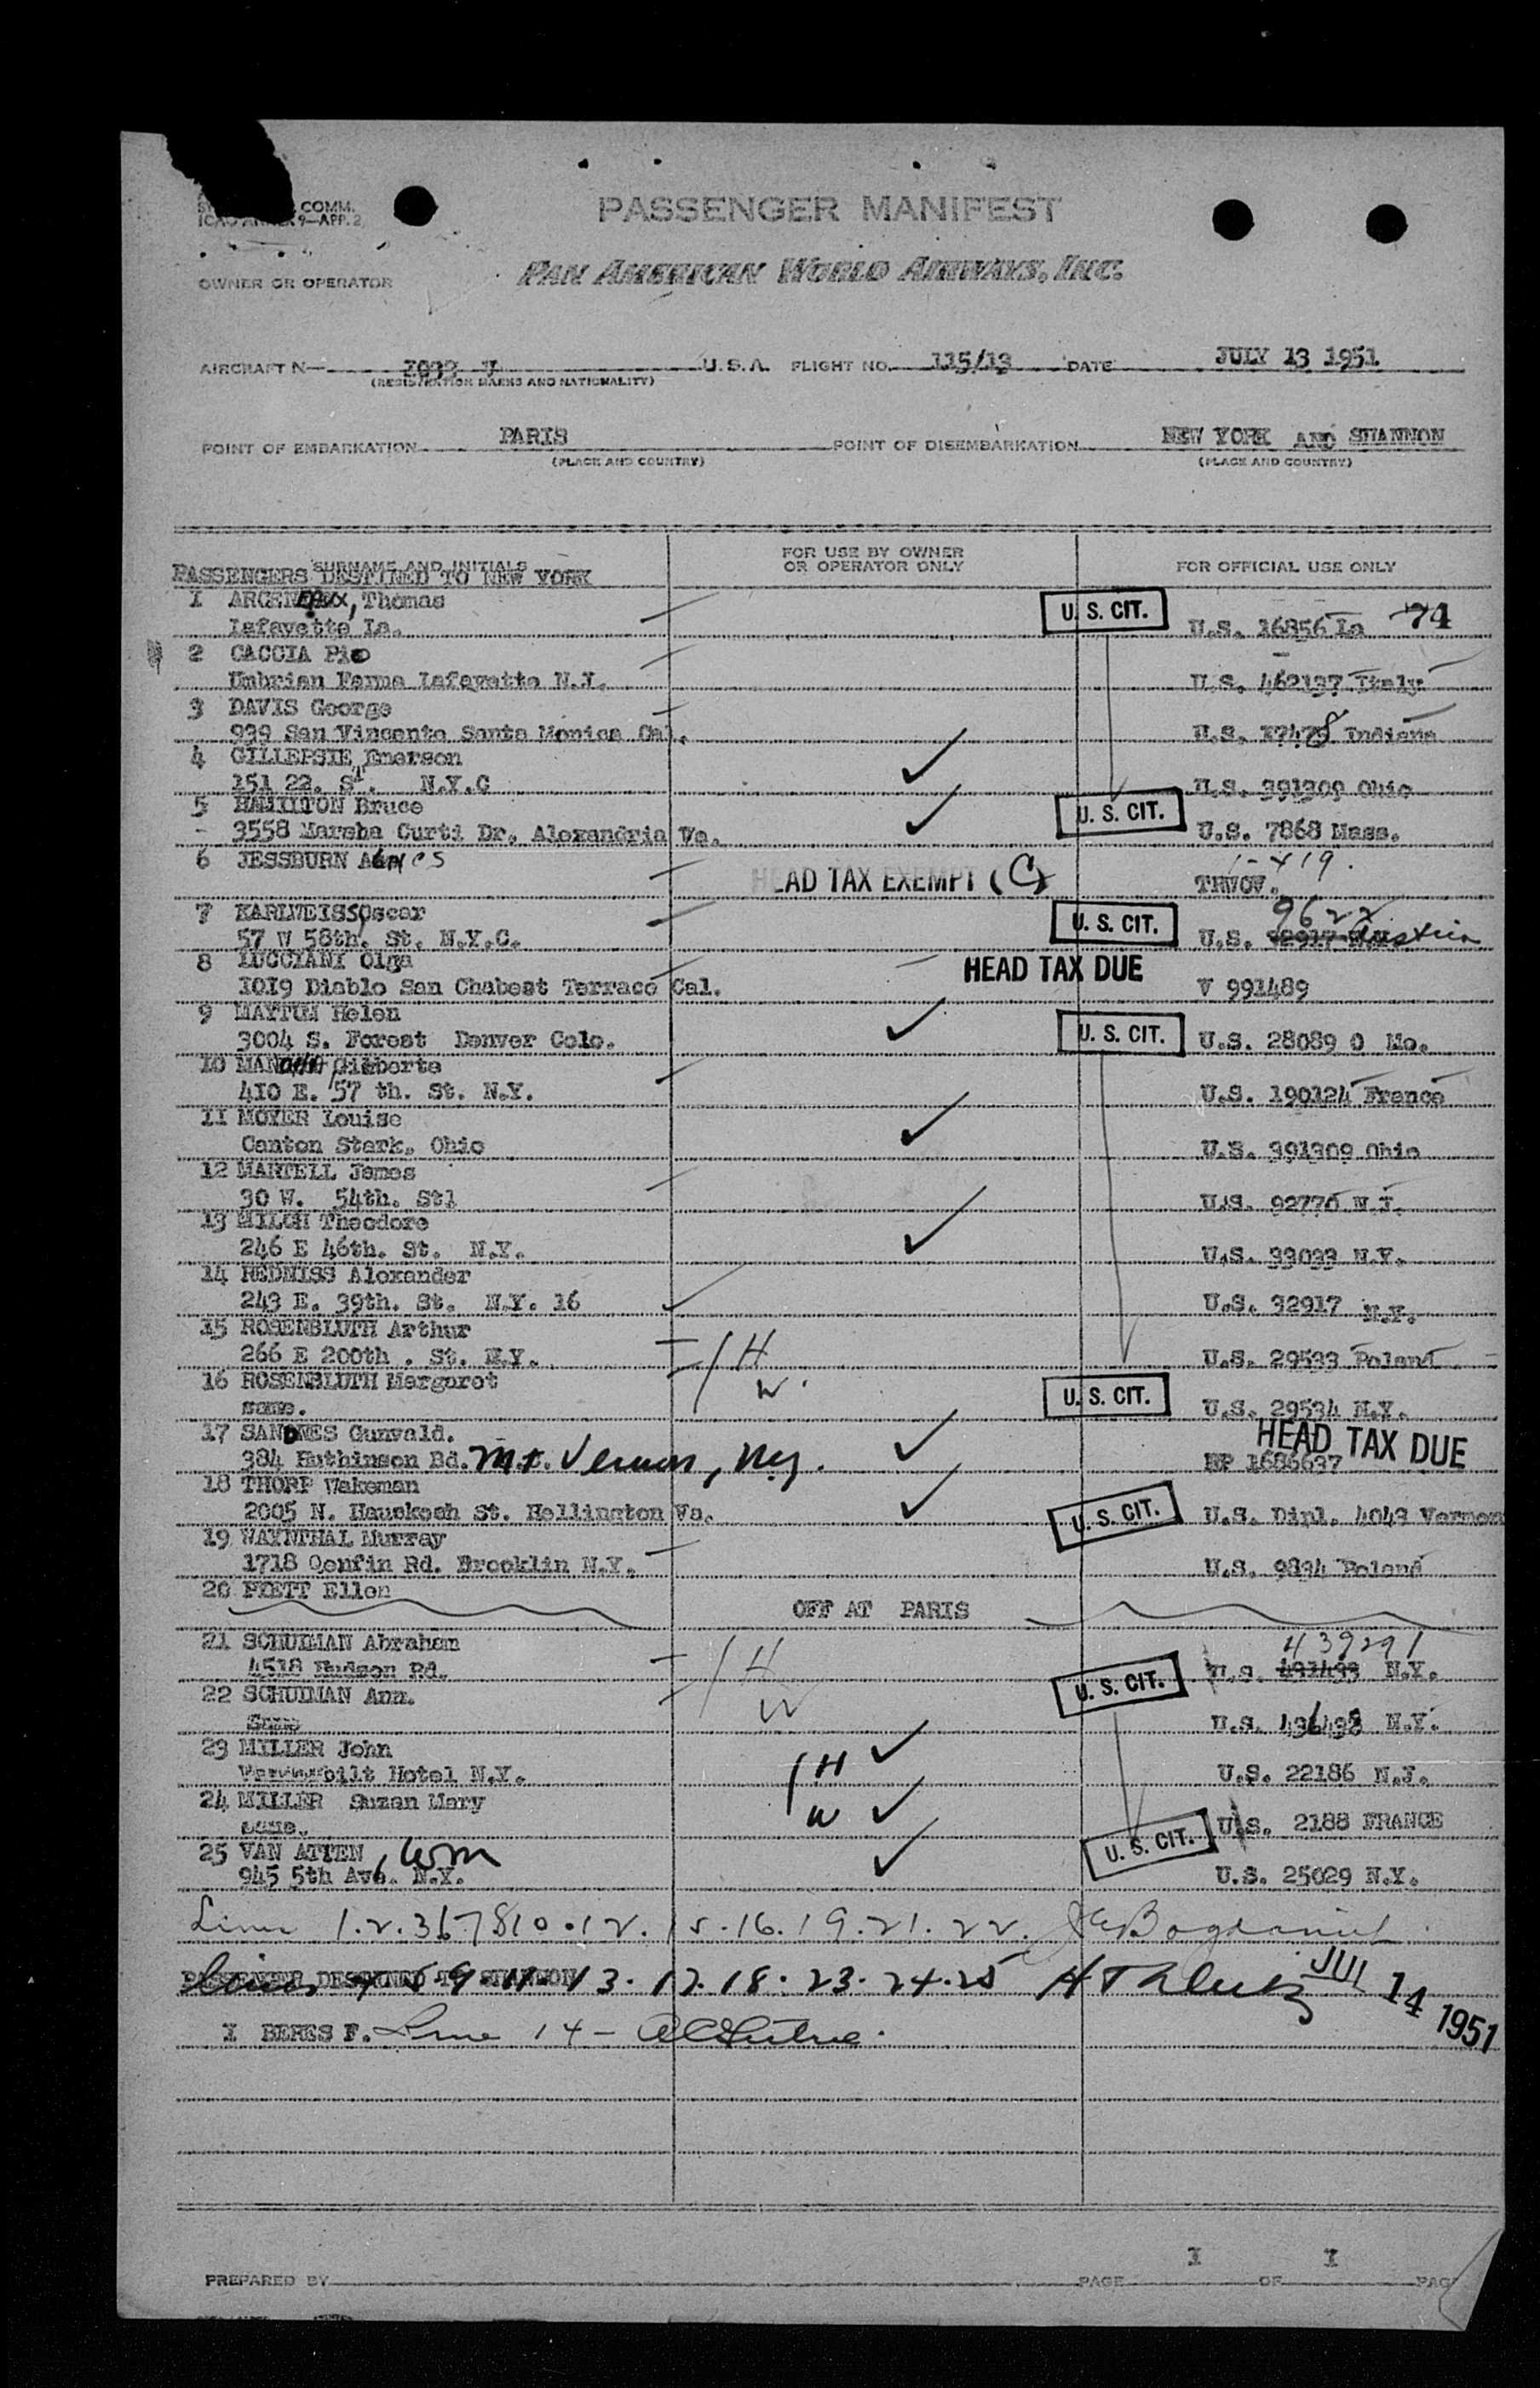 COMM.
9—APP. 2
PASSENGER MANIFEST
PAN AMERICAN WORLD AIRWAYS, INC.
OWNER OR OPERATOR
AIRCRAFT N— U.S.A. FLIGHT NO. 115/13 DATE JULY 13 1951
(REGISTRATION MARKS AND NATIONALITY)
POINT OF EMBARKATION PARIS POINT OF DISEMBARKATION NEW YORK AND SHANNON
(PLACE AND COUNTRY) (PLACE AND COUNTRY)
SURNAME AND INITIALS FOR USE BY OWNER OR OPERATOR ONLY FOR OFFICIAL USE ONLY
PASSENGERS DESTINED TO NEW YORK
1 Thomas U.S. CIT.
Lafayette La. U.S. 16856 La 74
2 CACCIA Pio
Umbrian Farms Lafayette N.J. U.S. 462137 Italy
3 DAVIS George
939 San Vincente Santa Monica Cal. U.S. Indiana
4 GILLEPSIE Emerson
151 22. St. N.Y.C U.S. 391309 Ohio
5 HAMILTON Bruce U.S. CIT.
3558 Marsha Curti Dr. Alexandria Va. U.S. 7868 Mass.
6 JESSBURN
HEAD TAX EXEMPT (C)
7 KARLWEISS, Oscar U.S. CIT. 9622
57 W 58th. St. N.Y.C. U.S. Austria
8 LUCCIANI Olga HEAD TAX DUE
1019 Diablo San Chabest Terrace Cal. V 991489
9 MAYTUM Helen U.S. CIT.
3004 S. Forest Denver Colo. U.S. 28089 0 Mo.
10 Gilberte
410 E. 57 th. St. N.Y. U.S. 190124 France
11 MOYER Louise
Canton Stark, Ohio U.S. 391309 Ohio
12 MARTELL James
30 W. 54th. St. U.S. 92776 N.J.
13 MILCH Theodore
246 E 46th. St. N.Y. U.S. 33033 N.Y.
14 REDNISS Alexander
243 E. 39th. St. N.Y. 16 U.S. 32917 N.Y.
15 ROSENBLUTH Arthur H
266 E 200th . St. N.Y. U.S. 29533 Poland
16 ROSENBLUTH Margaret W U.S. CIT.
same. U.S. 29534 N.Y.
17 SANDNES Gunvald. HEAD TAX DUE
384 Huthinson Bd. Mt. Vernon, N.Y. 1686637
18 THORP Wakeman
2005 N. St. Hellington Va. U.S. CIT. U.S. Dipl. 4043 Vermont
19 WAYNTHAL Murray
1718 Rd. Brooklin N.Y. U.S. 9834 Poland
20 Ellen OFF AT PARIS
21 SCHULMAN Abraham H 439291
4518 Hudson Rd. U.S. CIT. U.S. N.Y.
22 SCHULMAN Ann. W
Same U.S. N.Y.
23 MILLER John H
Hotel N.Y. U.S. 22186 N.J.
24 MILLER Suzan Mary W
same. U.S. 2188 FRANCE
25 VAN ATTEN, Wm U.S. CIT.
945 5th Ave. N.Y. U.S. 25029 N.Y.
Lines 1.2.3 6 7 8 10.12.15.16.19.21.22.
Lines 4 5 9 11 13.17.18.23.24.25 JUL 14 1951
1 BERES F. Line 14 —
I I
PREPARED BY PAGE OF PAG